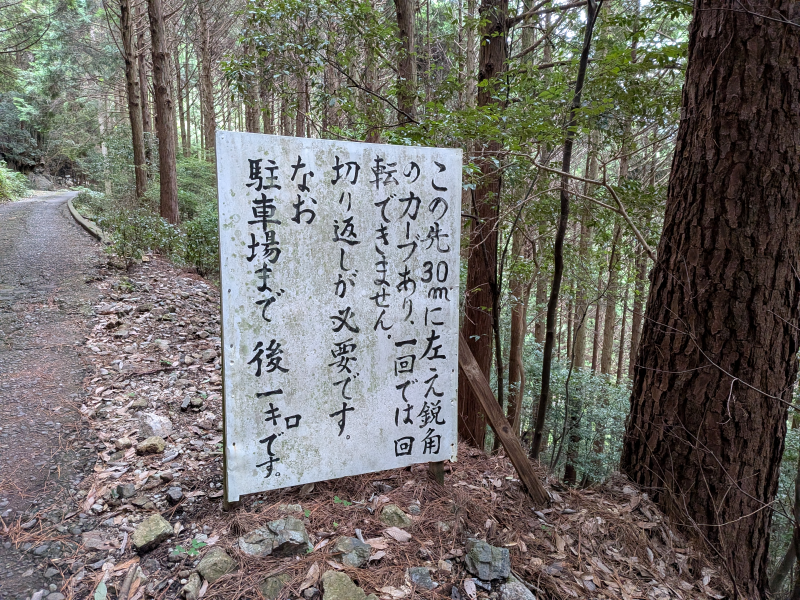 この先30㎡に左え鋭角
のカーブあり、一回では回
転できません。
切り返しが必要です。
なお
駐車場まで後一キロです。